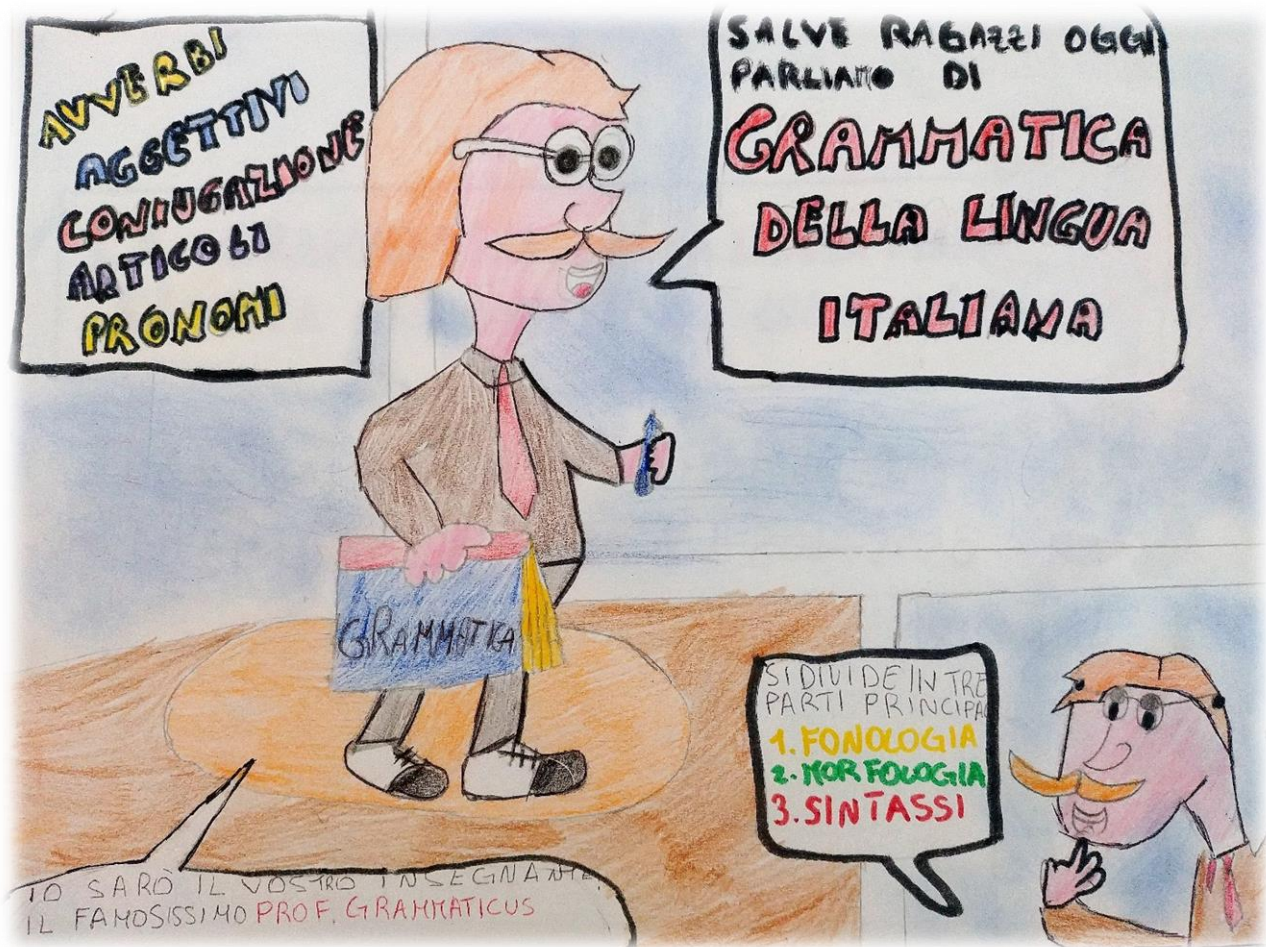 AVVERBI
AGGETTIVI
CONIUGAZIONE
ARTICOLI
PRONOMI
SALVE RAGAZZI OGGI
PARLIAMO DI
GRAMMATICA
DELLA LINGUA
ITALIANA
GRAMMATICA
SI DIVIDE IN TRE
PARTI PRINCIPA
1. FONOLOGIA
2. MORFOLOGIA
3. SINTASSI
IO SARÒ IL VOSTRO INSEGNANTE.
IL FAMOSISSIMO PROF. GRAMMATICUS